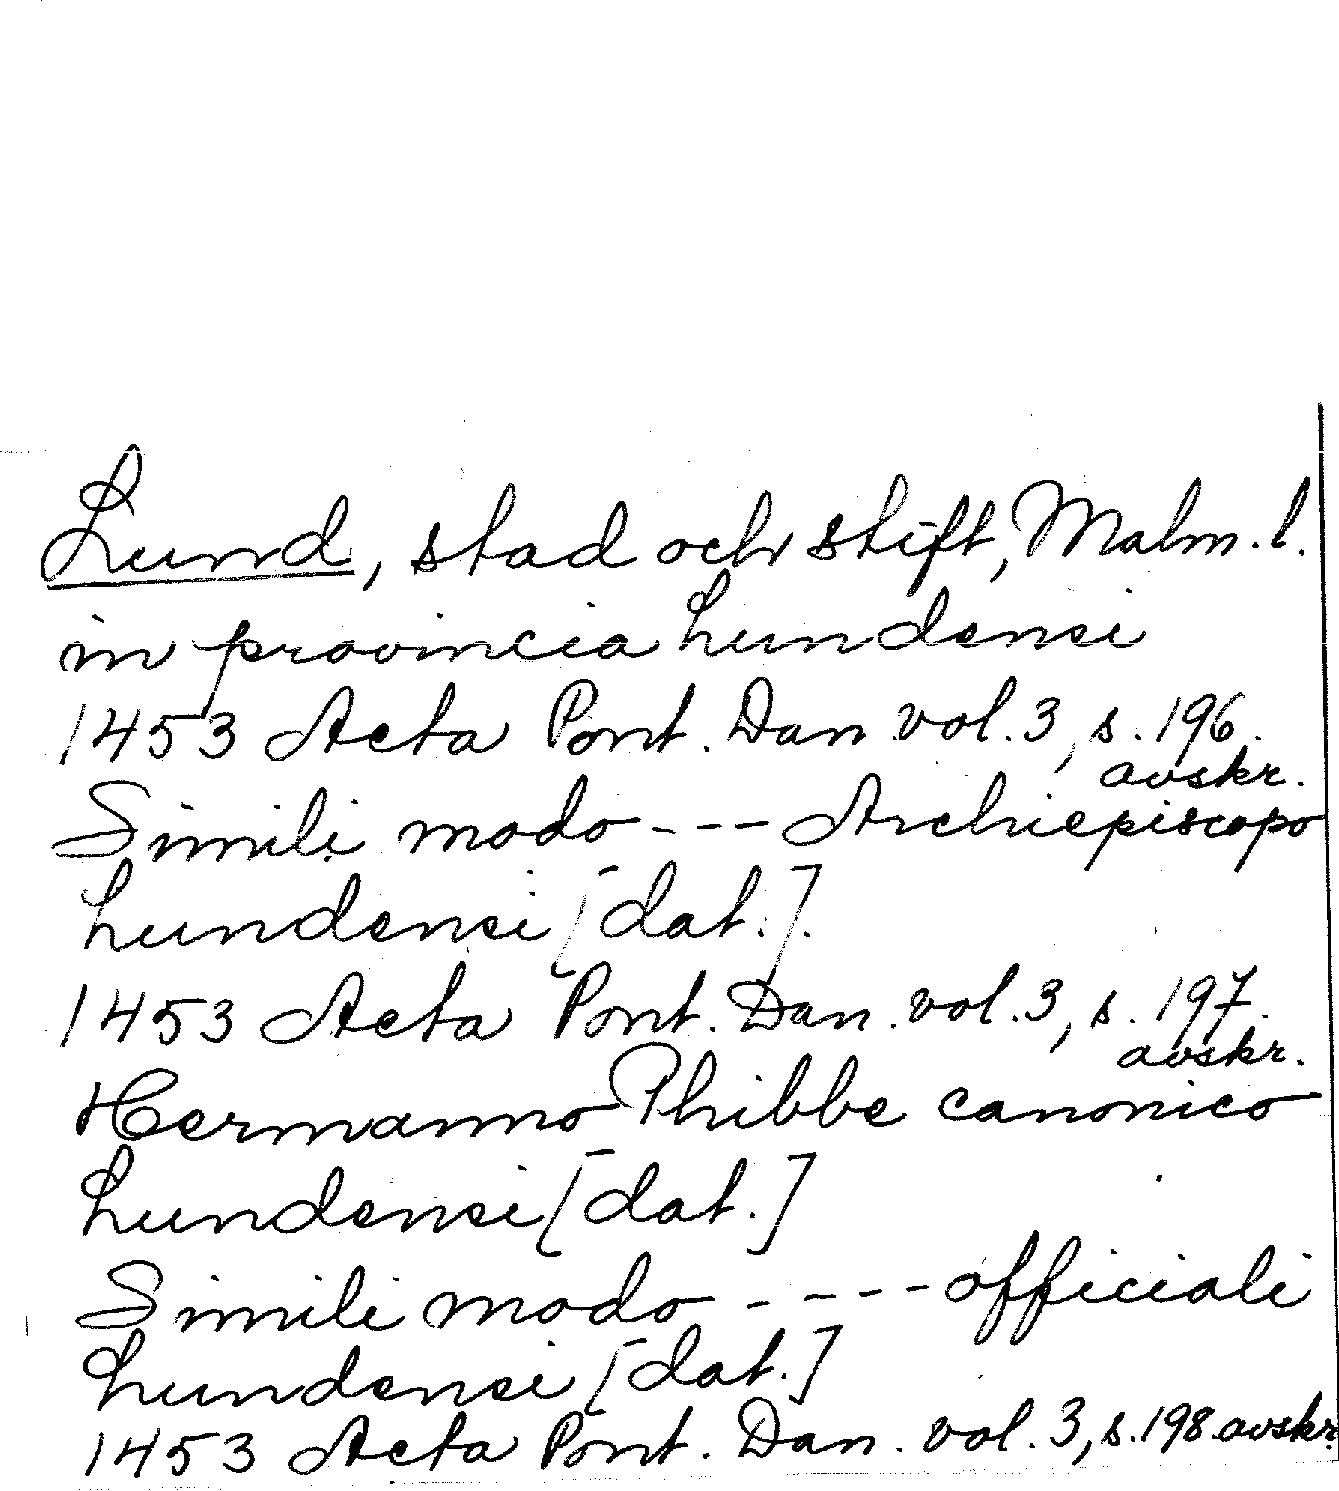 Lund, stad och stift, Malm. l.
in provincia Lundensi
1453 Acta Pont. Dan. vol. 3, s. 196.
avskr.
Simili modo --- Archiepiscopo
Lundensi [dat.].
1453 Acta Pont. Dan. vol. 3, s. 197.
avskr.
Hermanno Phibbe canonico
Lundensi [dat.]
Simili modo ---- officiali
Lundensi [dat.]
1453 Acta Pont. Dan. vol. 3, s. 198 avskr.